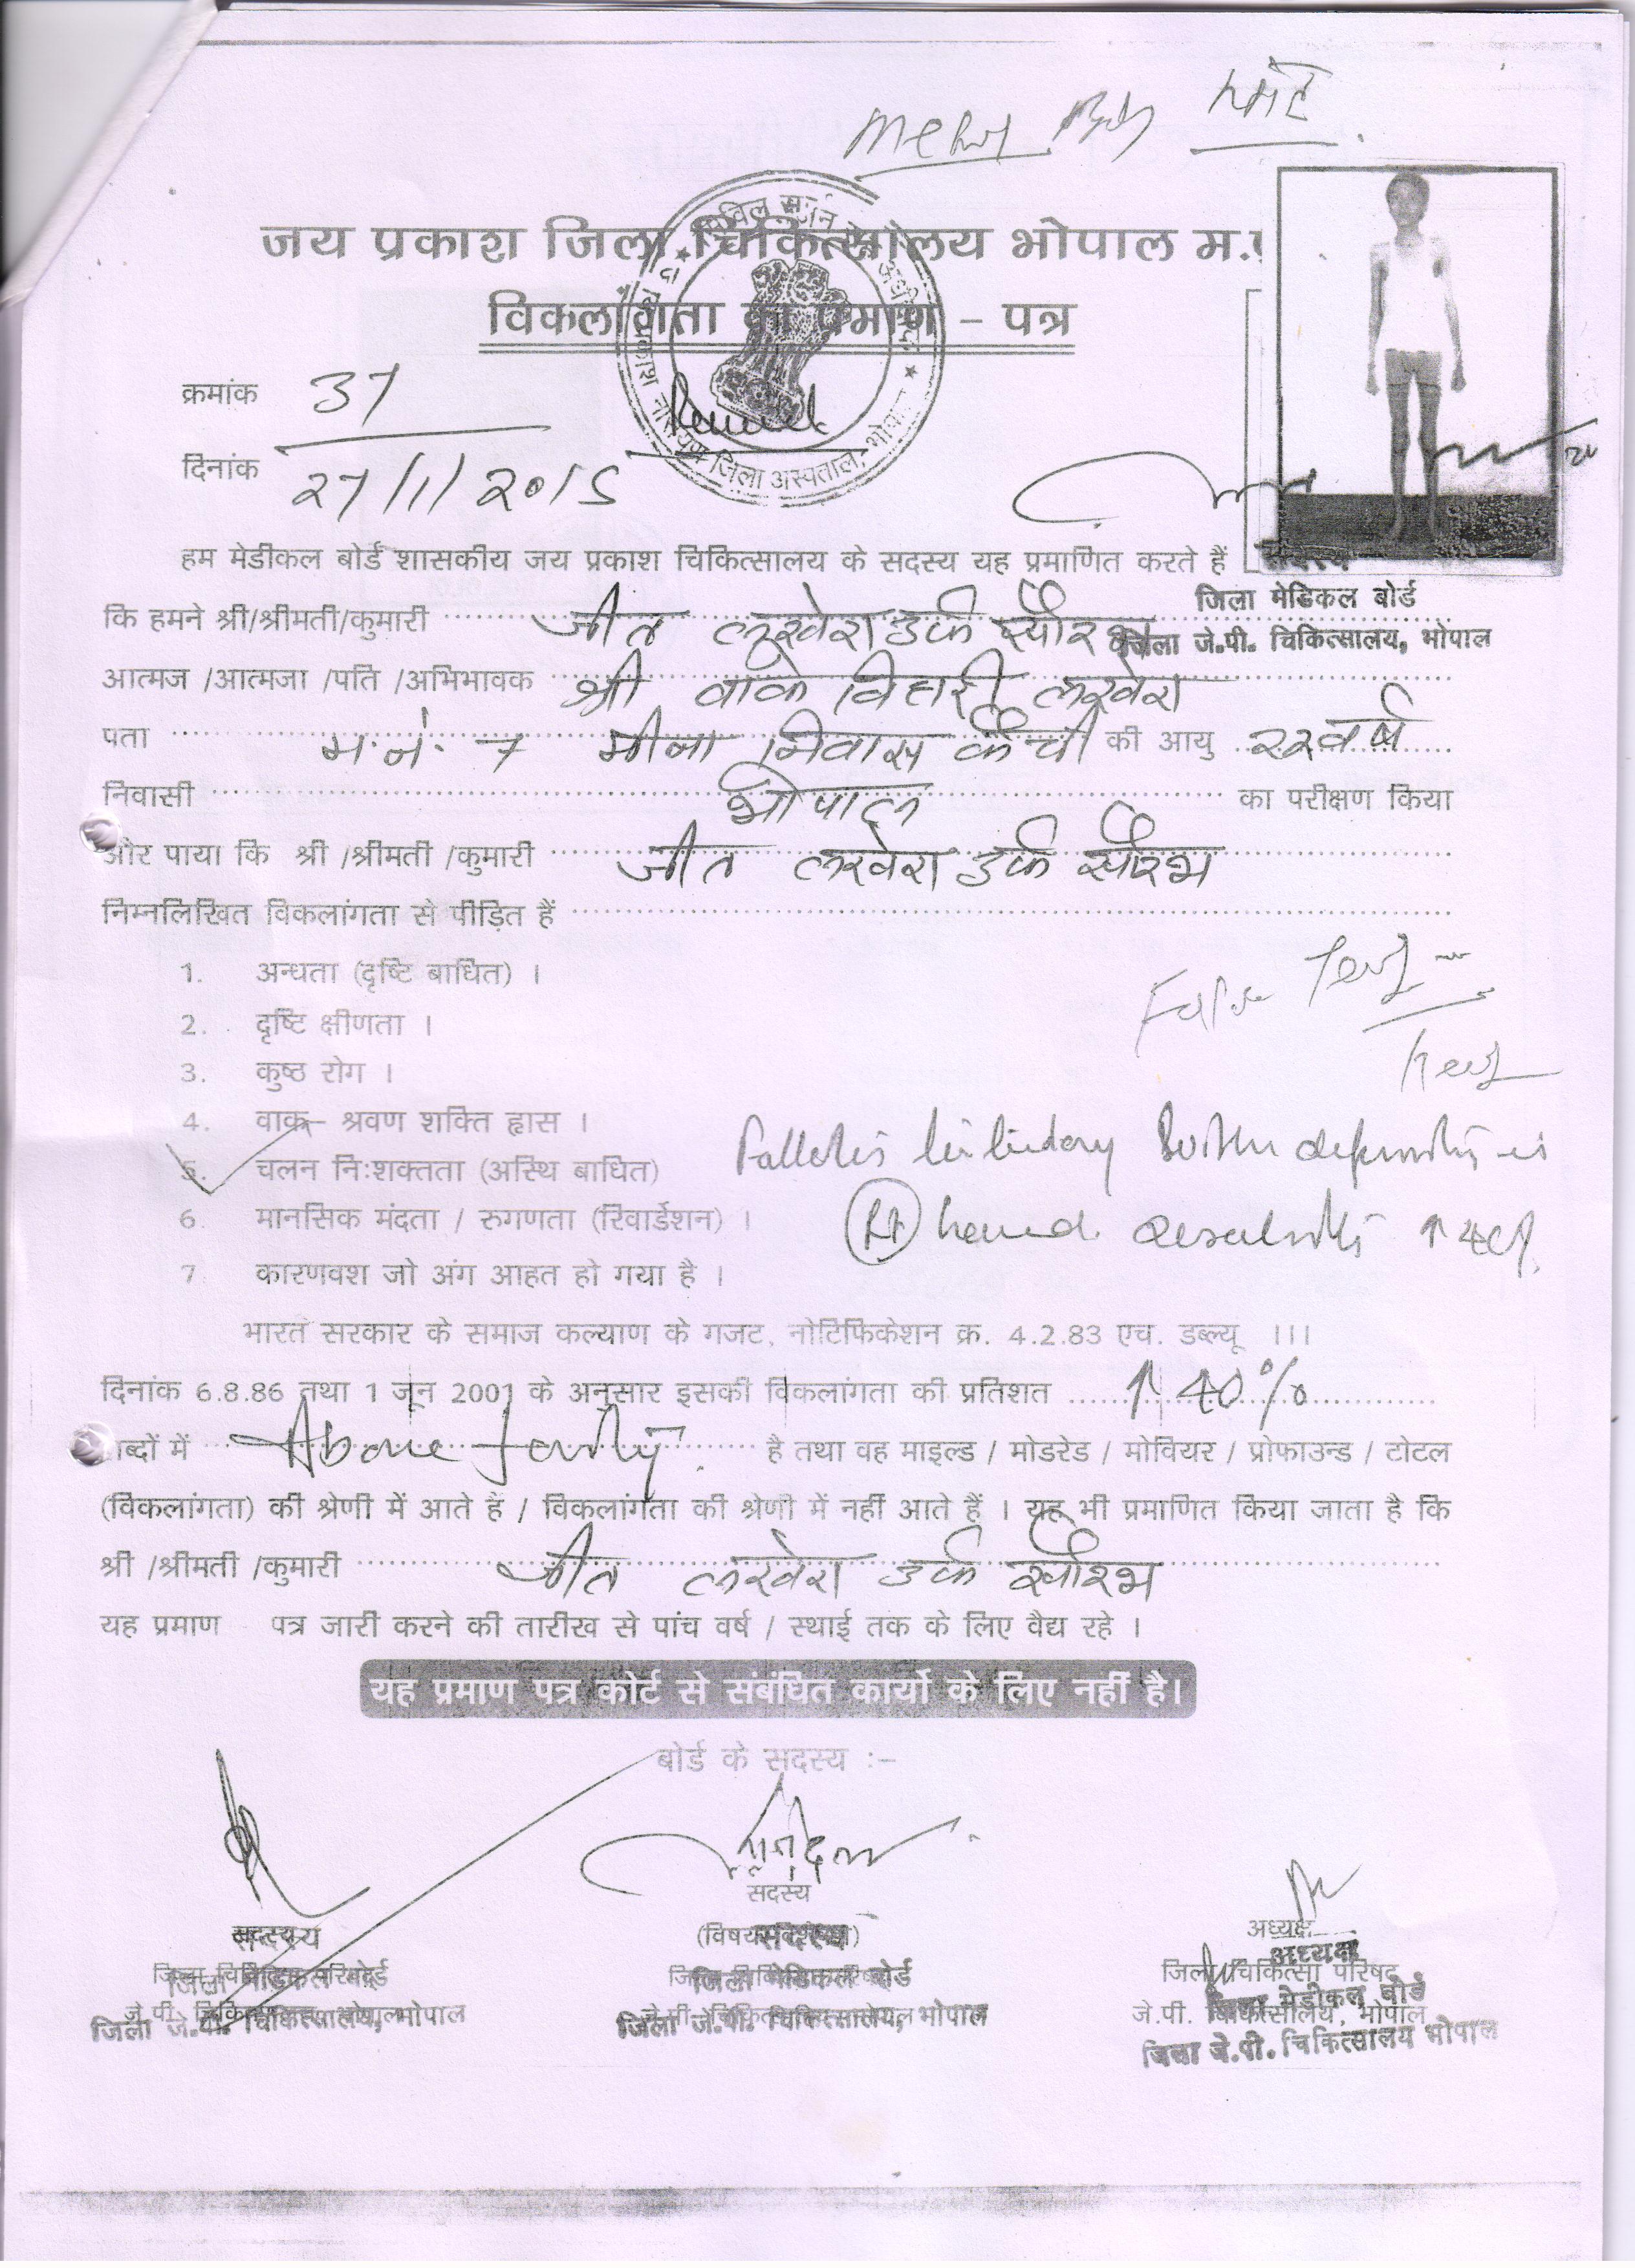 जय प्रकाश जिला चिकित्सालय भोपाल म.
विकलांगता का प्रमाण – पत्र
क्रमांक 37
दिनांक 27/1/2015
हम मेडीकल बोर्ड शासकीय जय प्रकाश चिकित्सालय के सदस्य यह प्रमाणित करते हैं
सदस्य
जिला मेडिकल बोर्ड
जिला जे.पी. चिकित्सालय, भोपाल
कि हमने श्री/श्रीमती/कुमारी जीत लखेरा उर्फ सौरभ
आत्मज /आत्मजा /पति /अभिभावक श्री वांके विहारी लखेरा
पता म.नं. 7 मीना निवास की आयु 22 वर्ष
निवासी भोपाल का परीक्षण किया
और पाया कि श्री /श्रीमती /कुमारी जीत लखेरा उर्फ सौरभ
निम्नलिखित विकलांगता से पीड़ित हैं
1. अन्धता (दृष्टि बाधित) ।
2. दृष्टि क्षीणता ।
3. कुष्ठ रोग ।
4. वाक– श्रवण शक्ति ह्रास ।
5. चलन निःशक्तता (अस्थि बाधित)
6. मानसिक मंदता / रुगणता (रिवार्डेशन) ।
7 कारणवश जो अंग आहत हो गया है ।
भारत सरकार के समाज कल्याण के गजट, नोटिफिकेशन क्र. 4.2.83 एच. डब्ल्यू ।।।
दिनांक 6.8.86 तथा 1 जून 2001 के अनुसार इसकी विकलांगता की प्रतिशत ↑ 40%
शब्दों में Above Forty. है तथा वह माइल्ड / मोडरेड / मोवियर / प्रोफाउन्ड / टोटल
(विकलांगता) की श्रेणी में आते हैं / विकलांगता की श्रेणी में नहीं आते हैं । यह भी प्रमाणित किया जाता है कि
श्री /श्रीमती /कुमारी जीत लखेरा उर्फ सौरभ
यह प्रमाण पत्र जारी करने की तारीख से पांच वर्ष / स्थाई तक के लिए वैद्य रहे ।
यह प्रमाण पत्र कोर्ट से संबंधित कार्यो के लिए नहीं है।
बोर्ड के सदस्य :–
सदस्य
जिला मेडिकल बोर्ड
जिला जे.पी. चिकित्सालय, भोपाल
सदस्य
(विषय विशेषज्ञ)
सदस्य
जिला मेडिकल बोर्ड
जिला जे.पी. चिकित्सालय, भोपाल
अध्यक्ष
अध्यक्ष
जिला चिकित्सा परिषद
जिला मेडीकल बोर्ड
जे.पी. चिकित्सालय, भोपाल
जिला जे.पी. चिकित्सालय भोपाल